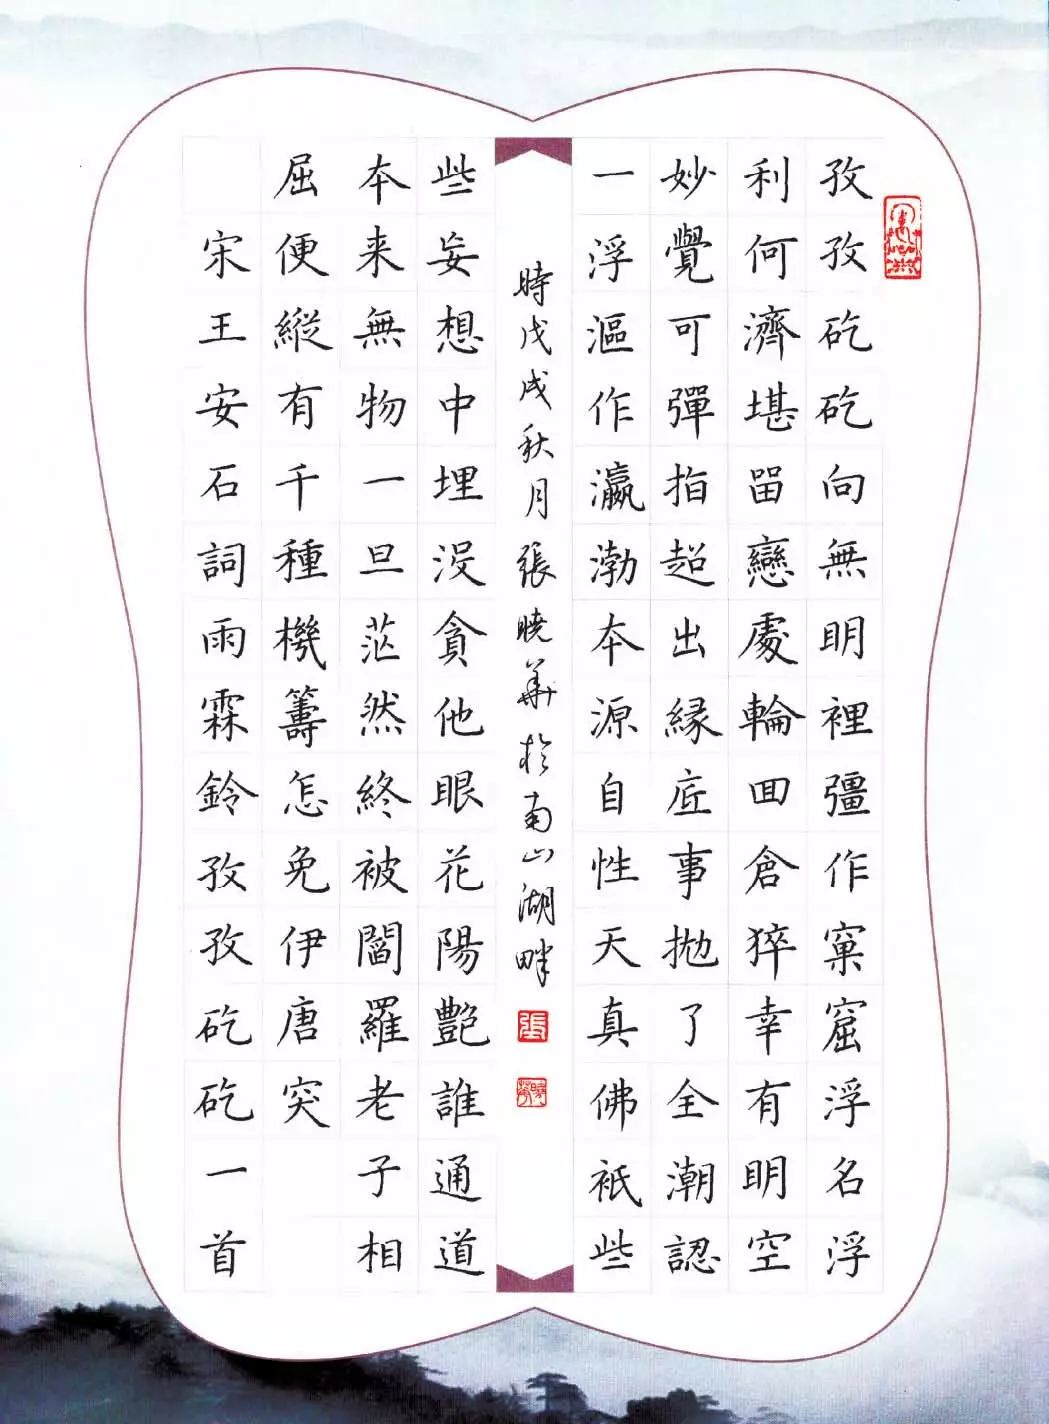 孜孜矻矻向無明裡彊作窠窟浮名浮
利何濟堪留戀處輪回倉猝幸有明空
妙覺可彈指超出緣底事拋了全潮認
一浮漚作瀛渤本源自性天真佛衹些
些妄想中埋没貪他眼花陽艷誰通道
本来無物一旦茫然終被閻羅老子相
屈便縱有千種機籌怎免伊唐突
宋王安石詞雨霖鈴孜孜矻矻一首
時戊戌秋月張曉華於南山湖畔
張